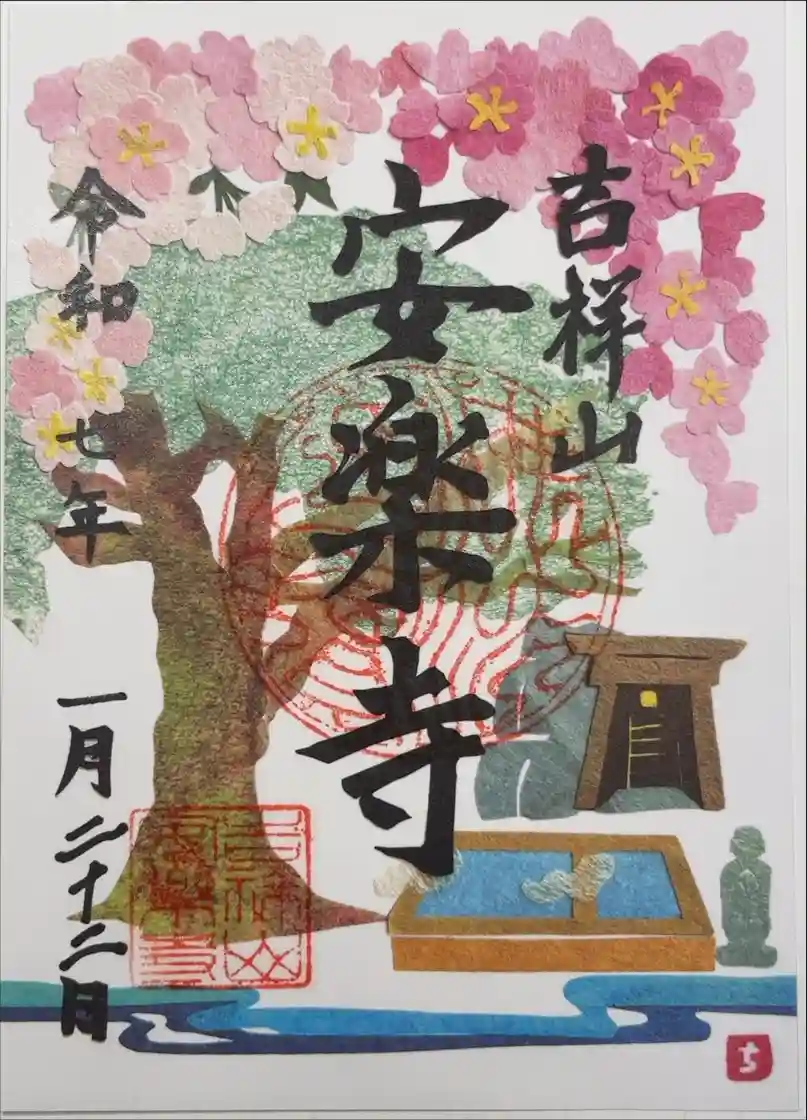 吉祥山
安楽寺
令和七年
一月二十二日
吉祥山
安楽寺
ち